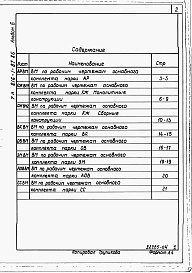 2
Альбом 6
Содержание
Лист Наименование Стр
АР.ВМ ВМ по рабочим чертежам основного
комплекта марки АР 3-5
ВМ по рабочим чертежам основного
комплекта марки КЖ Монолитные
конструкции 6-9
ВМ по рабочим чертежам основного
комплекта марки КЖ Сборные
конструкции 10-13
ВМ по рабочим чертежам основного
комплекта марки ВК 14-15
ОВ.ВМ ВМ по рабочим чертежам основного
комплекта марки ОВ 16-17
ЭМ.ВМ ВМ по рабочим чертежам основного
комплекта марки ЭМ 18-19
ВМ по рабочим чертежам основного
комплекта марки АОВ 20
СС.ВМ ВМ по рабочим чертежам основного
комплекта марки СС 21
2
Копировал Формат А4